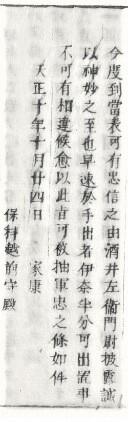 今度到當表可有忠信之由酒井左衞門尉披露誠
以神妙之至也早速於手出者伊奈半分可出置事
不可有相違候愈以此旨可被抽軍忠之條如件
天正十年十月廿四日　家康
保科越前守殿